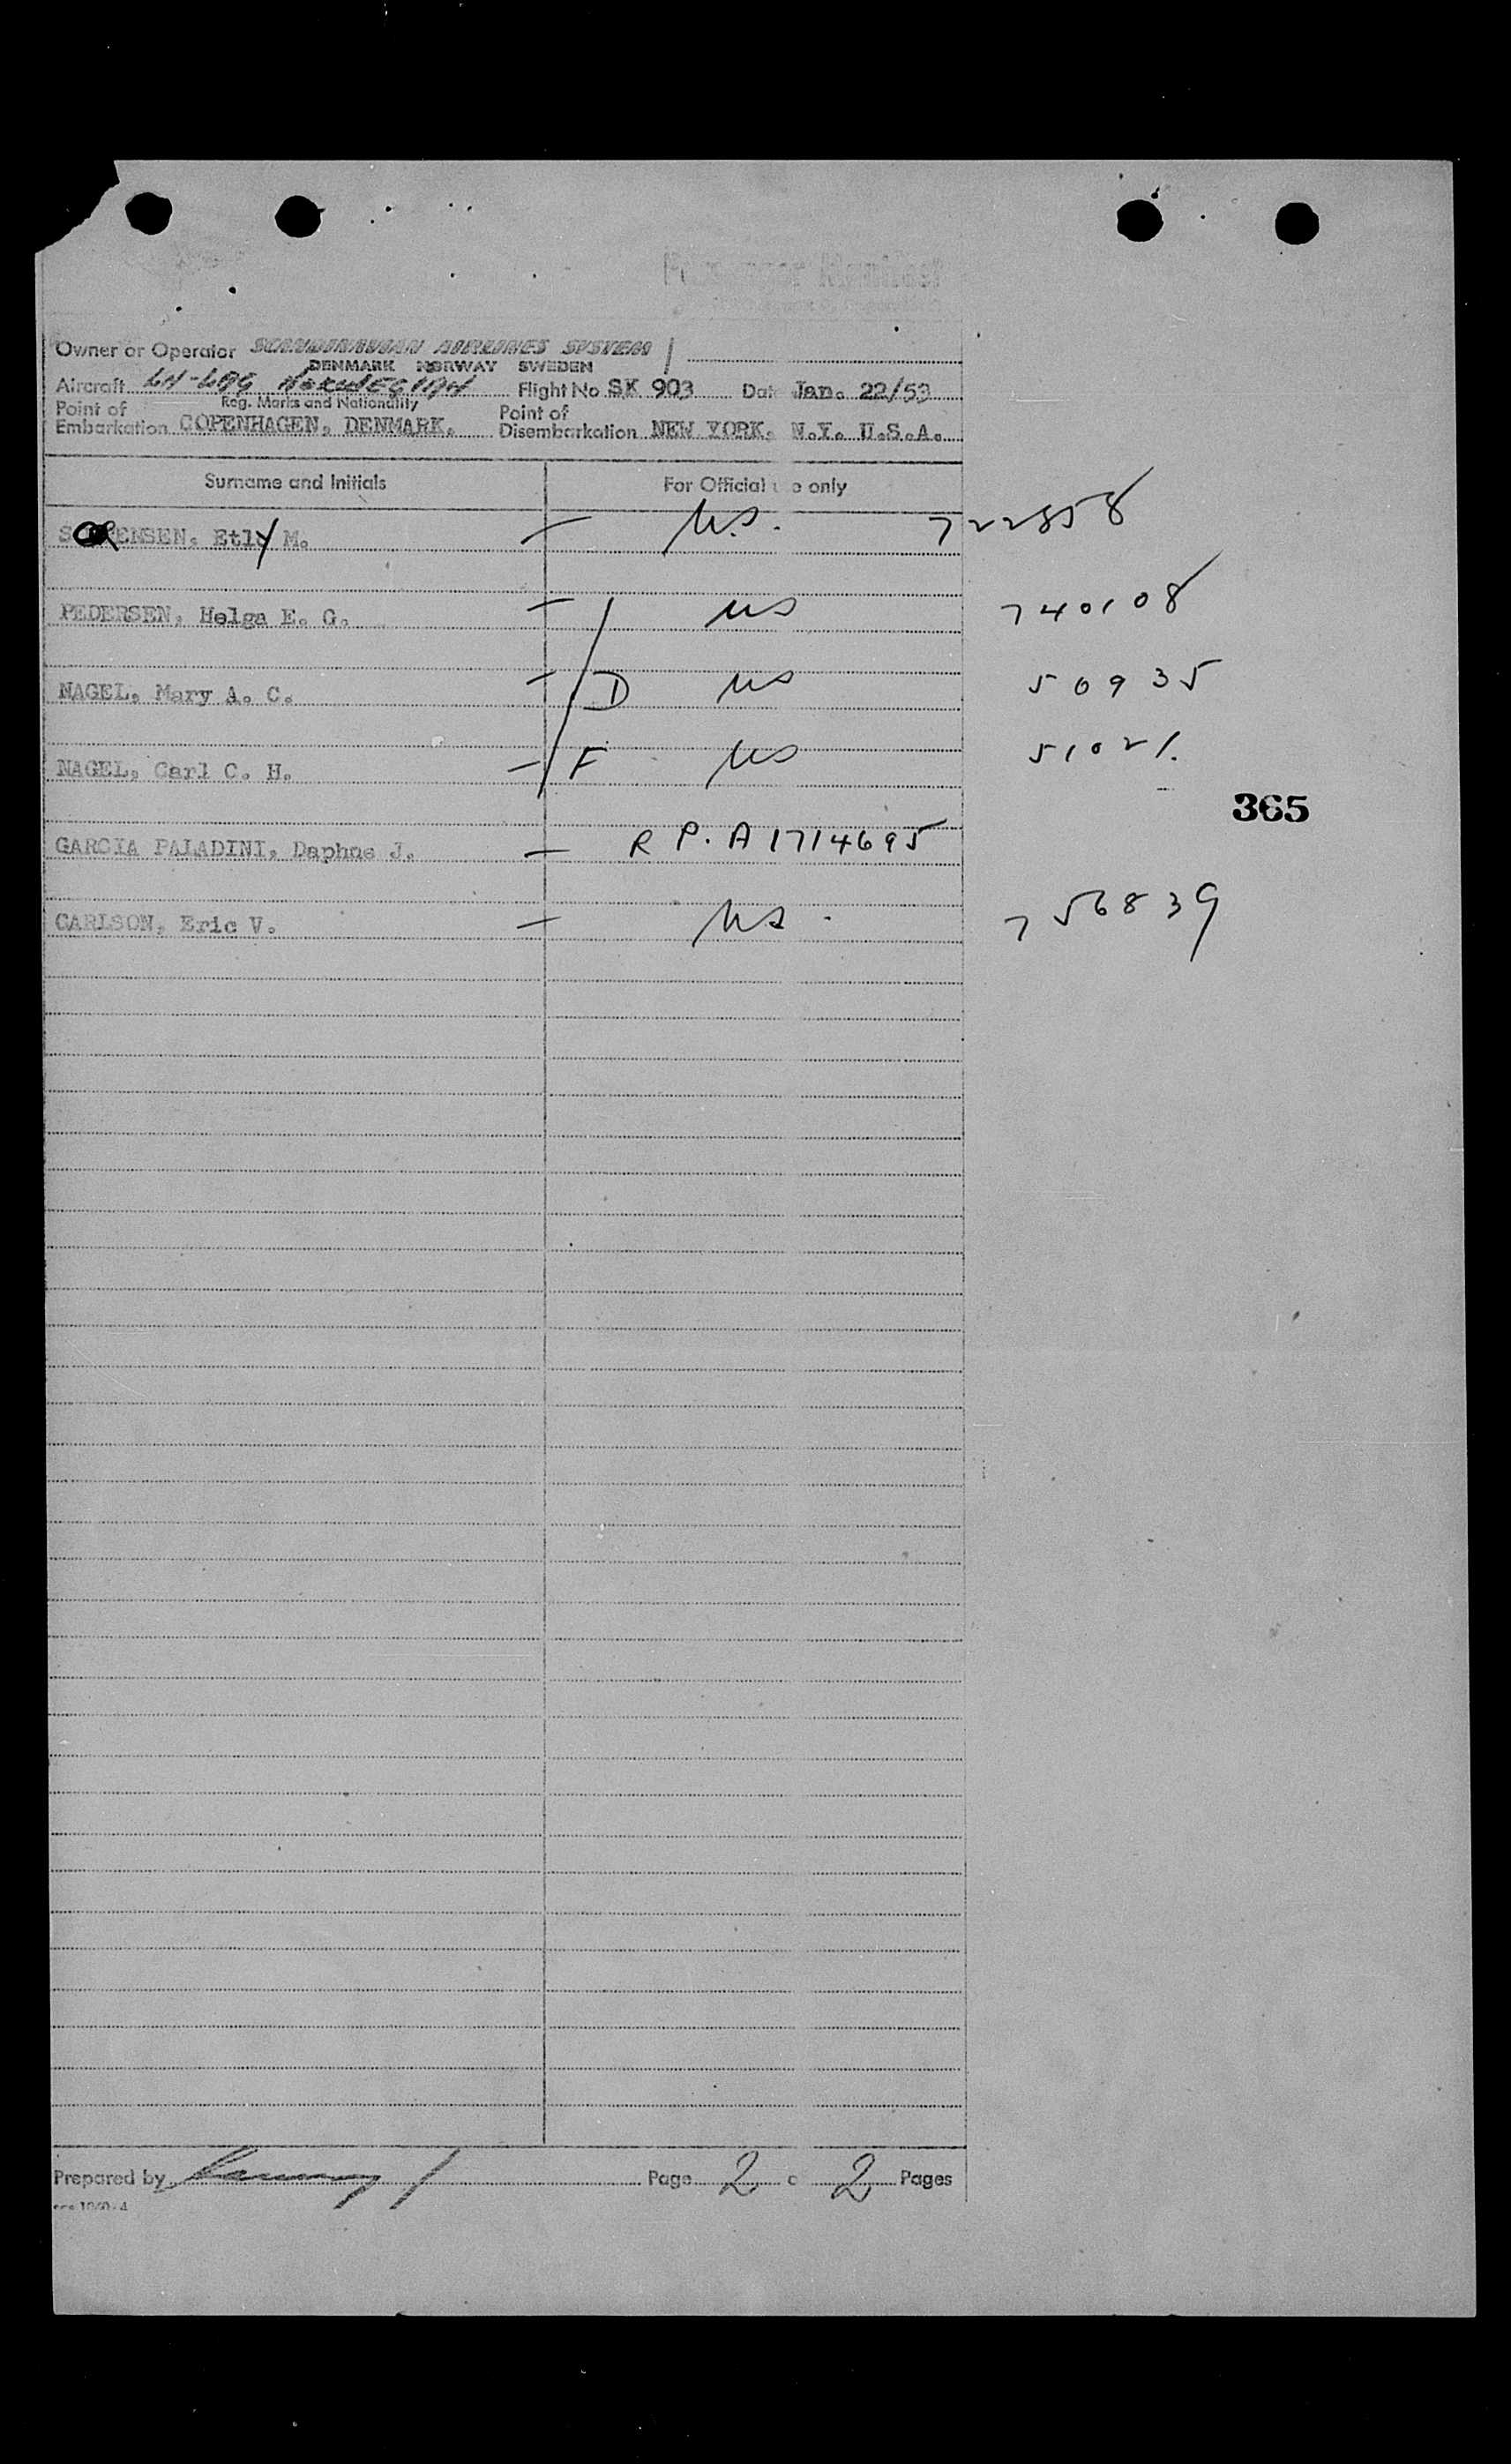 Passenger Manifest
Owner or Operator SCANDINAVIAN AIRLINES SYSTEM
DENMARK NORWAY SWEDEN
Aircraft LN-LAG NORWEGIAN Flight No SK 903 Dat Jan. 22/53
Reg. Marks and Nationality
Point of Embarkation COPENHAGEN, DENMARK. Point of Disembarkation NEW YORK, N.Y. U.S.A.
Surname and Initials For Official u e only
SORENSEN, Etly M. — US. 722858
PEDERSEN, Helga E. G. — US 740108
NAGEL, Mary A. C. — D US 50935
NAGEL, Carl C. H. — F US 51021.
365
GARCIA PALADINI, Daphne J. — R P. A1714695
CARLSON, Eric V. — US. 756839
Prepared by Page 2 o 2 Pages